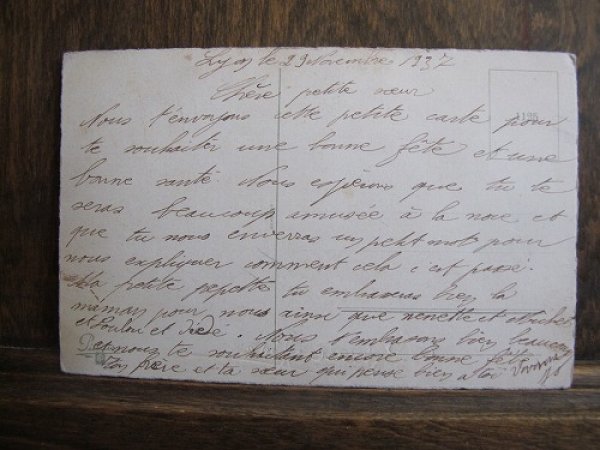 Lyon le 29 Novembre 1937
Chère petite sœur
Nous t'envoyons cette petite carte pour
te souhaiter une bonne fête et une
bonne santé. Nous espérons que tu te
seras beaucoup amusée à la noce et
que tu nous enverras un petit mot pour
nous expliquer comment cela c'est passé.
Ma petite pepette tu embrasseras bien la
maman pour nous ainsi que nenette et
et Loulou et Dédé. Nous t'embrassons bien beaucoup
et nous te souhaitant encore bonne fête
Ton frère et ta sœur qui pense bien a toi